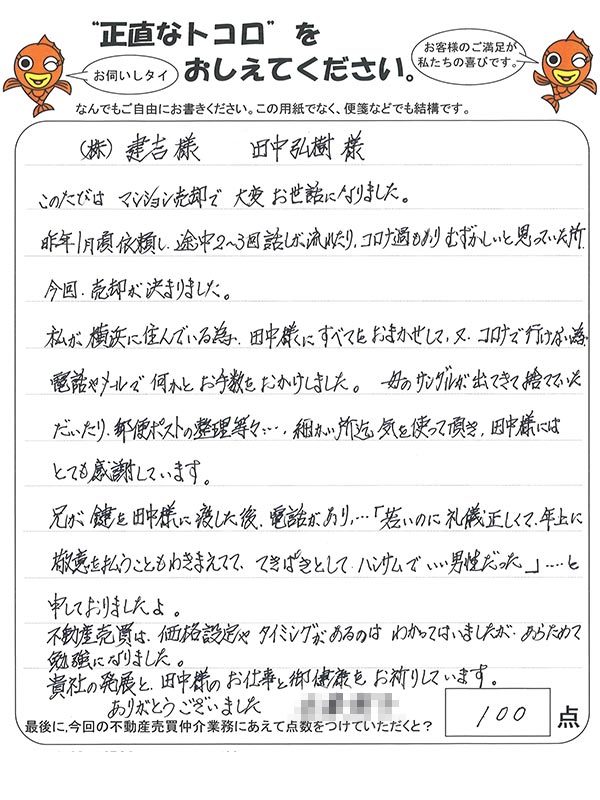 "正直なトコロ"を
おしえてください。
お伺いしタイ
お客様のご満足が
私たちの喜びです。
なんでもご自由にお書きください。この用紙でなく、便箋などでも結構です。
(株) 建吉様 田中弘樹様
このたびは マンション売却で 大変 お世話になりました。
昨年1月頃依頼し、途中2~3回話しが流れたり、コロナ過もありむずかしいと思っていた所
今回、売却が決まりました。
私が横浜に住んでいる為、田中様にすべてをおまかせして、又、コロナで行けない為
電話やメールで何かとお手数をおかけしました。母のサンダルが出てきて捨てていた
だいたり、郵便ポストの整理等々…、細かい所迄、気を使って頂き、田中様には
とても感謝しています。
兄が鍵を田中様に渡した後、電話があり、…「若いのに礼儀正しくて、年上に
敬意を払うこともわきまえてて、てきぱきとして、ハンサムでいい男性だった」……と
申しておりましたよ。
不動産売買は、価格設定やタイミングがあるのは わかってはいましたが、あらためて
勉強になりました。
貴社の発展と、田中様のお仕事と御健康をお祈りしています。
ありがとうございました
最後に、今回の不動産売買仲介業務にあえて点数をつけていただくと?
100 点